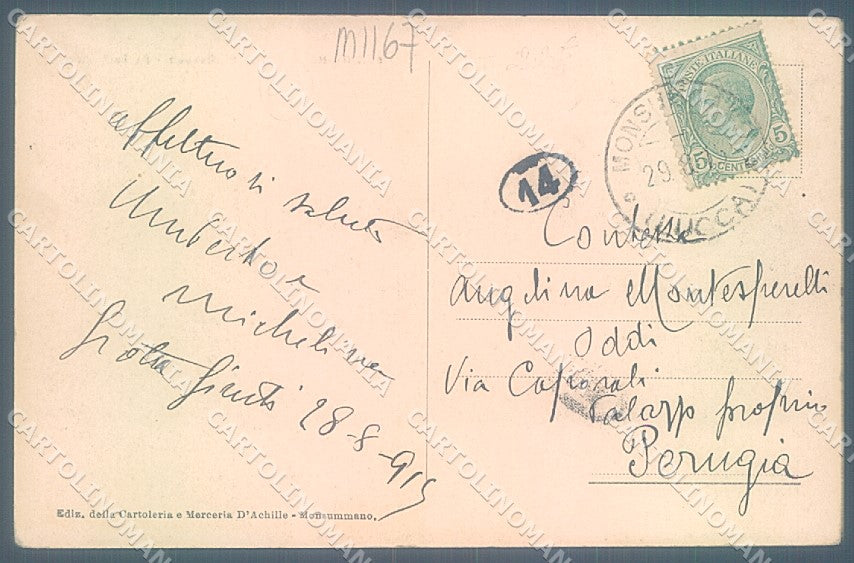 m1167
affettuosi saluti
Umberto e
Michelina
Grotta Giusti 28-8-915
Ediz. della Cartoleria e Merceria D'Achille - Monsummano.
14
POSTE ITALIANE
5 CENTESIMI 5
MONSUMMANO
29.8
(LUCCA)
Contessa
Angelina Montesperelli
Oddi
Via Caporali
Palazzo proprio
Perugia
CARTOLINOMANIA